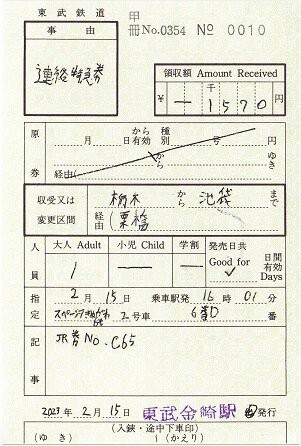 東武鉄道
甲
冊No.0354 № 0010
事由
連絡特急券
領収額 Amount Received
千
¥ 一1570円
原券
月 日 から有効 種別 号 円
から ゆき
経由(
収受又は変更区間
栃木 から 池袋 まで
経由(栗橋
人員
大人 Adult 小児 Child 学割 発売日共
1 Good for ✓ 日間有効 Days
指定
2月15日 乗車駅発 16時01分
スペーシアきぬがわ6号 2号車 6番D 番
記事
JR券No. C65
2023年2月15日 東武金崎駅 発行
(入鋏・途中下車印)
(ゆき) (かえり)